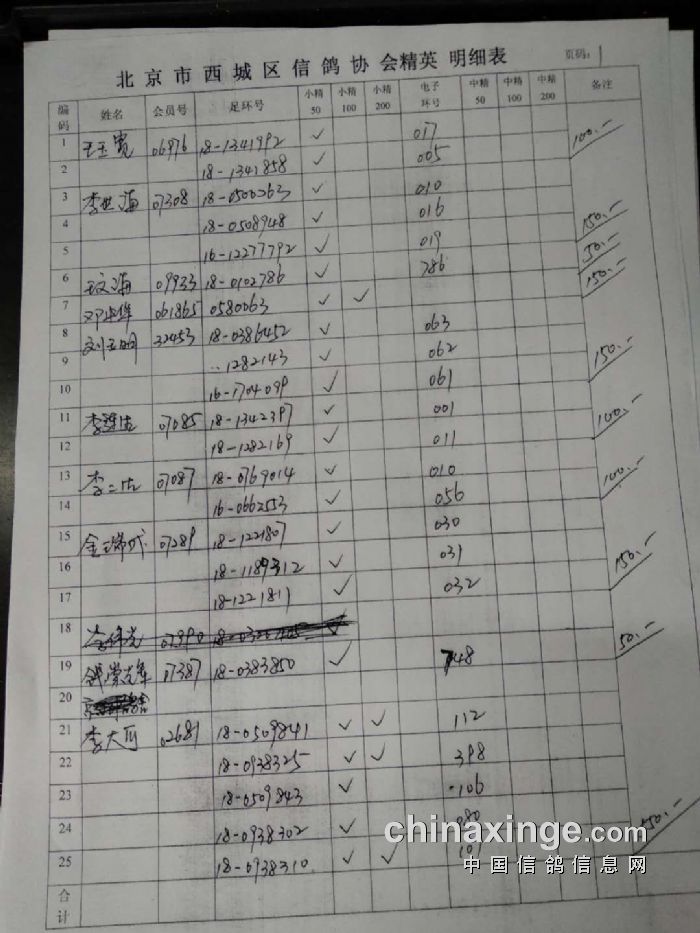 北京市西城区信鸽协会精英 明细表 页码: 1
编码 姓名 会员号 足环号 小精50 小精100 小精200 电子环号 中精50 中精100 中精200 备注
1 王玉宽 06976 18-1341992 ✓ 017 100.-
2 18-1341858 ✓ 005
3 李世海 07308 18-0500263 ✓ 010
4 18-0508948 ✓ 016 150.-
5 16-12277792 ✓ 019 50.-
6 09933 18-0102786 ✓ 786 150.-
7 061865 0580063 ✓ ✓
8 刘玉明 32453 18-0386452 ✓ 063
9 ..1282143 ✓ 062 150.-
10 16-1704099 ✓ 061
11 07085 18-1342397 ✓ 001 100.-
12 18-1282169 ✓ 011
13 07087 18-0769014 ✓ 010 100.-
14 16-0662553 ✓ 056
15 07289 18-1221807 ✓ 030
16 18-1189312 ✓ 031 150.-
17 18-1221811 ✓ 032
18 50.-
19 07387 18-0383850 ✓ 748
20
21 李大 02681 18-0509841 ✓ ✓ 112
22 18-0938325 ✓ ✓ 398
23 18-0509843 ✓ 106
24 18-0938302 ✓ 080
25 18-0938310 ✓ ✓
合计
chinaxinge.com
中国信鸽信息网